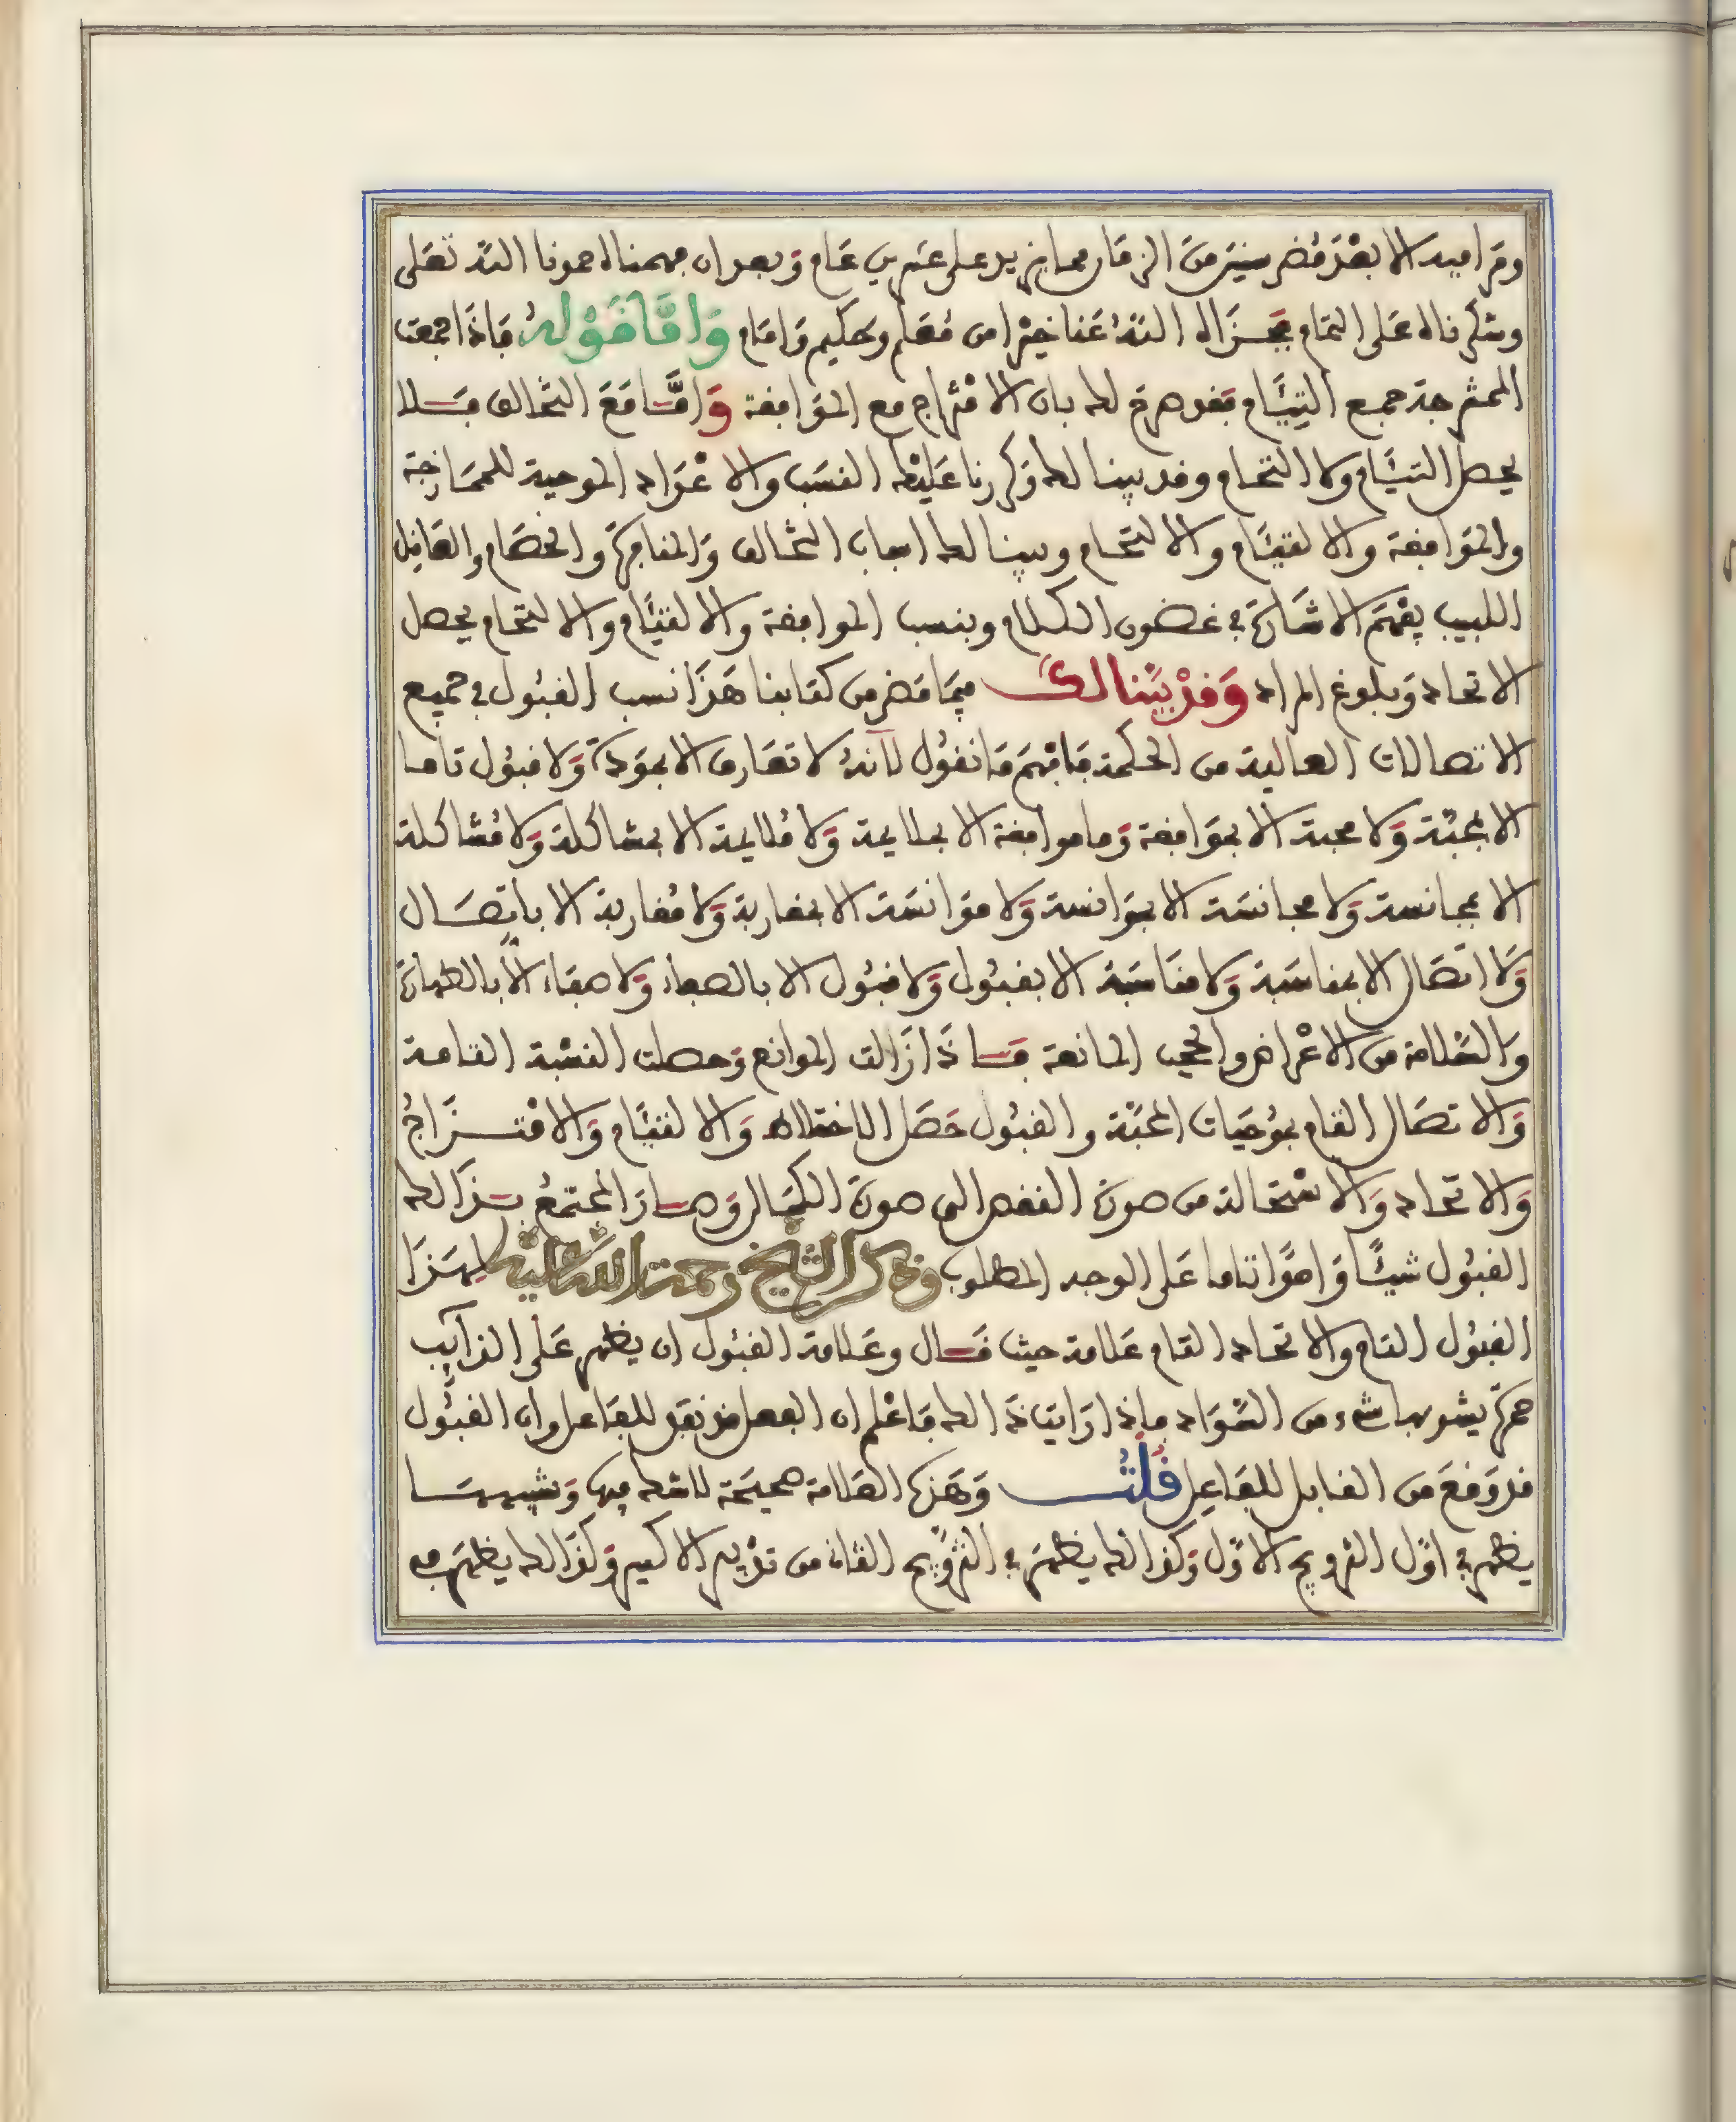 ومراميه الا بعد مضي سنين من الزمان مما يزيد على عشرين عام وبعد ان فهمناه حمدنا الله تعلى
وشكرناه على التمام فجزاه الله عنا خيرا من معلم وحكيم وامام واما قوله فاذا اجمعت
الممتزجة جمع التيام فقد صرح لك بان الامتزاج مع الموافقة واما مع التخالف فلا
يحصل التيام ولا التحام وقد بينا لك وكررنا عليك النسب والاعواد الموجبة للممازجة
والموافقة والالتيام والالتحام وبينا لك اسباب التخالف والمنافرة والخصام والعاقل
اللبيب يفهم الاشارة في غضون الكلام وبنسب الموافقة والالتيام والالتحام يحصل
الاتحاد وبلوغ المراد وقد بينا لك فيما مضى من كتابنا هذا نسب القبول في جميع
الاتصالات العالية من الحكمة فافهم ما نقول لانه لا تعارف الا بمودة ولا قبول تاما
الا بمحبة ولا محبة الا بموافقة وما موافقة الا بملايمة ولا ملايمة الا بمشاكلة ولا مشاكلة
الا بمجانسة ولا مجانسة الا بموانسة ولا موانسة الا بمقاربة ولا مقاربة الا باتصال
ولا اتصال الا بمناسبة ولا مناسبة الا بقبول ولا قبول الا بالصفاء ولا صفاء الا بالطهارة
والسلامة من الاعراض والحجب المانعة فاذا زالت الموانع وحصلت النسبة التامة
والاتصال التام بموجبات المحبة والقبول حصل الاختلاط والالتيام والامتزاج
والاتحاد والاستحالة من صورة النقص الى صورة الكمال وصار المجتمع بذالك
القبول شيئا واحدا تاما على الوجه المطلوب وذكر الشيخ رحمة الله عليه لهذا
القبول التام والاتحاد التام علامة حيث قال وعلامة القبول ان يظهر على المراكب
حمرة يشوبها شيء من السواد فاذا رايت ذالك فاعلم ان الفعل قد نفذ للفاعل وان القبول
قد وقع من القابل للفاعل قلت وهذه العلامة صحيحة لا شك فيها وسببها
يظهر في اول التزويج الاول وكذالك يظهر في التزويج الثاني من تدبير الاكسير وكذالك يظهر في